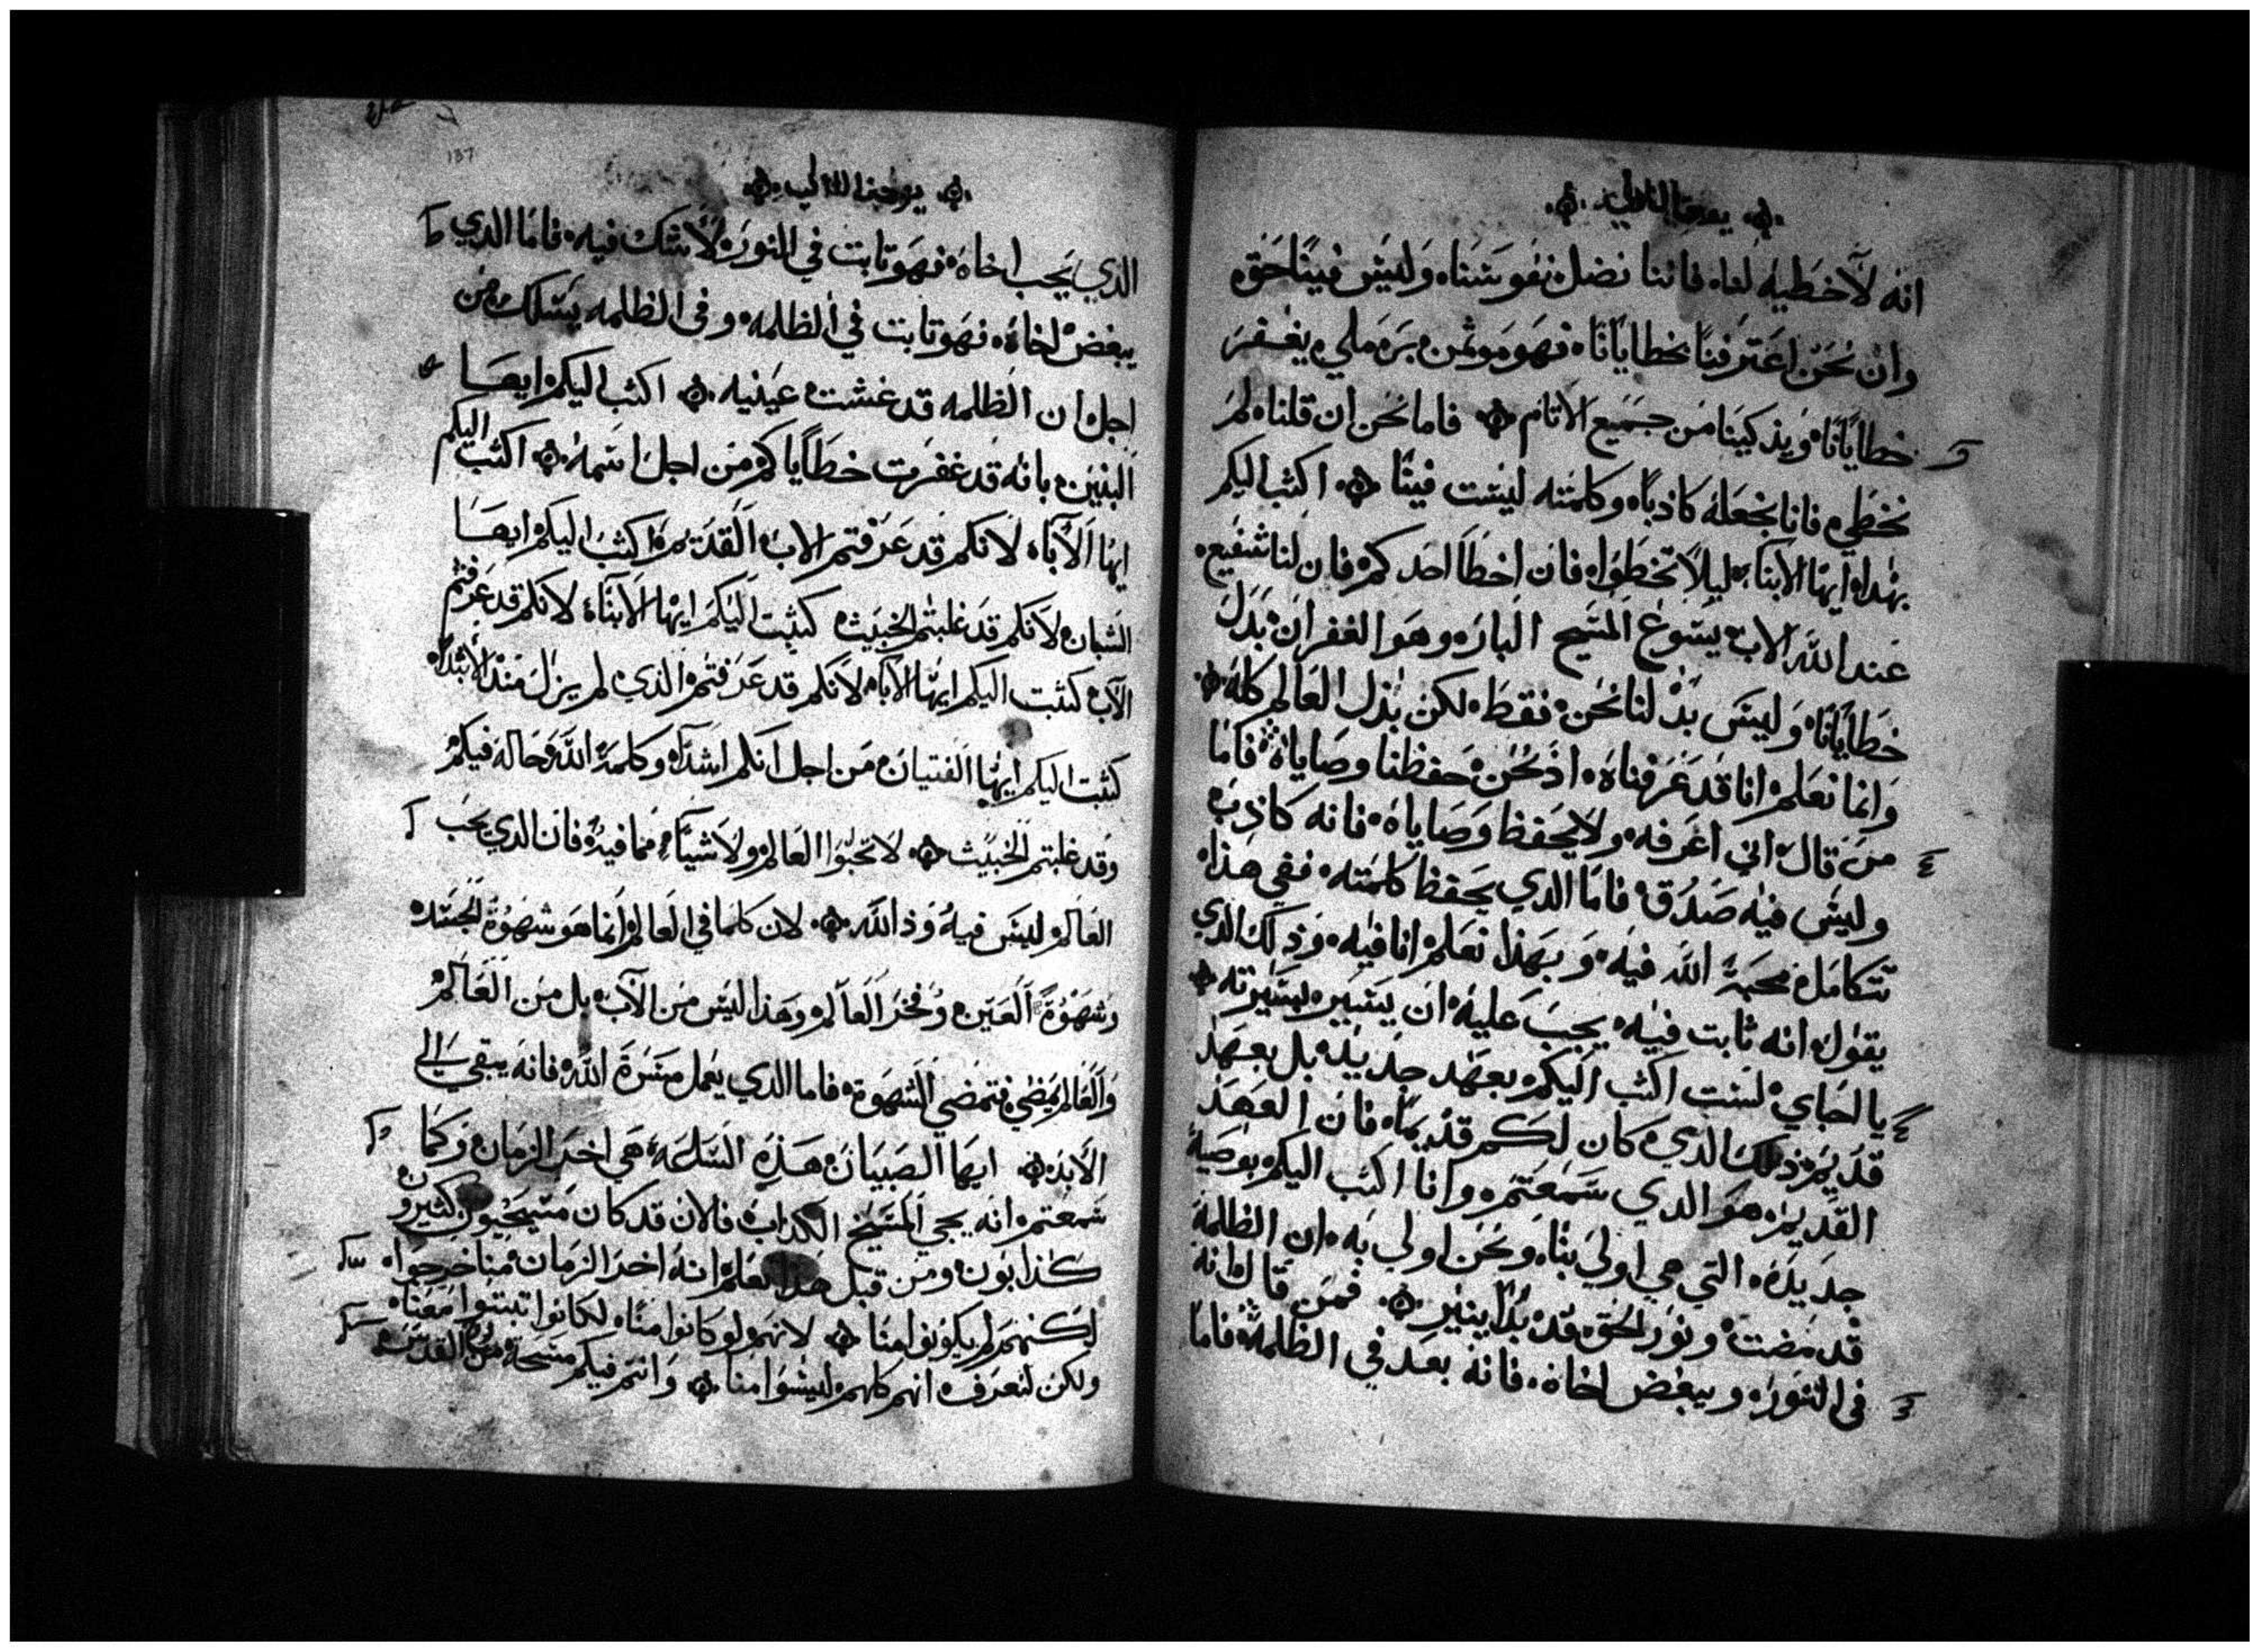 انه لا خطيه لنا، فاننا نضل نفوسنا، وليس فينا حق،
وان نحن اعترفنا بخطايانا، فهو مومن بر ملي، يغفر
خطايانا، ويذكينا من جميع الاثام ۞ فاما نحن ان قلنا، لم
نخطي، فانا نجعله كاذبا، وكلمته ليست فينا ۞ اكتب اليكم
بهدا، ايها الابنا، ليلا تخطوا، فان اخطا احدكم، فان لنا شفيع،
عند الله الاب، يسوع المسيح البار، وهو الغفران، بدل
خطايانا، وليس بدلنا نحن، فقط، لكن بدل العالم كله ۞
وانما نعلم، انا قد عرفناه، اذ نحن، حفظنا وصاياه، فاما
من قال، اني اعرفه، ولا يحفظ وصاياه، فانه كاذب،
وليس فيه صدق، فاما الدي يحفظ كلمته، ففي هذا،
تتكامل، محبة الله فيه، وبهذا نعلم، انا فيه، وذلك الدي
يقول، انه ثابت فيه، يجب عليه، ان يسير، بسيرته ۞
يا احباي، لست اكتب اليكم، بعهد جديد، بل بعهد
قديم، ذلك الدي، كان لكم قديما، فان العهد
القديم، هو الدي سمعتم، وانا اكتب اليكم، بوصية
جديده، التي هي اولي بنا، ونحن اولي به، ان الظلمة
قد مضت، ونور الحق، قد بدا ينير ۞ فمن قال انه
في النور، ويبغض اخاه، فانه بعد في الظلمة، فاما
137
۞ يوحنا الاولي ۞
الدي يحب اخاه، فهو تابت في النور، لا شك فيه، فاما الدي
يبغض اخاه، فهو تابت في الظلمه، وفي الظلمه يسلك، من
اجل ان الظلمه قد غشت، عينيه ۞ اكتب اليكم، ايها
البنين، بانه قد غفرت خطاياكم، من اجل اسمه ۞ اكتب اليكم
ايها الاباء، لانكم قد عرفتم الاب، القديم، اكتب اليكم ايها
الشبان، لانكم قد غلبتم الخبيث، كتبت اليكم ايها الابناء، لانكم قد عرفتم
الاب، كتبت اليكم ايها الاباء، لانكم قد عرفتم، الدي، لم يزل منذ الابتداء،
كتبت اليكم ايها الفتيان، من اجل انكم اشداء، وكلمة الله، حاله فيكم،
وقد غلبتم الخبيث ۞ لا تحبوا العالم، ولا شياء، مما فيه، فان الدي يحب
العالم، ليس فيه، ود الله ۞ لان كلما في العالم، انما هو شهوة الجسد،
وشهوة العين، وفخر العالم، وهذا ليس من الاب، بل من العالم،
والعالم يمضي، فتمضي الشهوة، فاما الدي يعمل مسرة الله، فانه يبقي الي
الابد ۞ ايها الصبيان، هذه الساعة، هي اخر الزمان، وكما
سمعتم، انه يجي المسيح الكداب، فالان قد كان مسيحيون، كثيرون
كذابون، ومن قبل هذا نعلم، انه اخر الزمان، منا خرجوا،
لكنهم، لم يكونوا منا ۞ لانهم، لو كانوا منا، لكانوا تبتوا معنا،
ولكن لتعرف، انهم كلهم، ليسوا منا ۞ وانتم فيكم مسحة، من القدس،